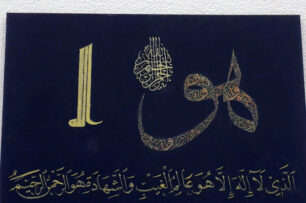 بسم الله الرحمن الرحيم
هو الله
الَّذِي لَا إِلَهَ إِلَّا هُوَ عَالِمُ الْغَيْبِ وَالشَّهَادَةِ هُوَ الرَّحْمَنُ الرَّحِيمُ